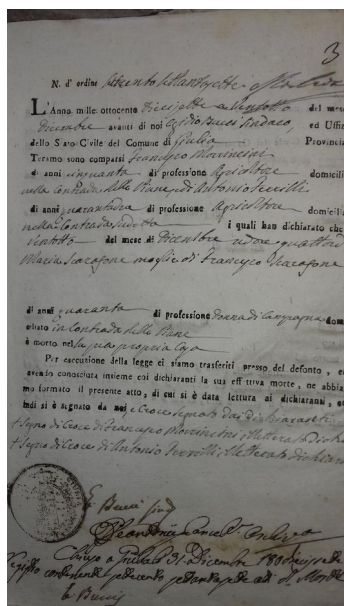 3
N. d' ordine settecento settantasette
L'Anno mille ottocento diecisette a Ventotto del mese
Dicembre avanti di noi Egidio Bucci Sindaco, ed Uffiz
dello Stato Civile del Comune di Giulia Provincia
Teramo sono comparsi Francesco Morricini
di anni cinquanta di professione Agricoltore domicili
nella Contrada delle Piane, ed Antonio Servilli
di anni quarantadue di professione Agricoltore domicilia
nella Contrada i quali han dichiarato che
Ventotto del mese di Dicembre ad ore quattro
Maria Scarafone moglie di Francesco Scarafone
di anni quaranta di professione donna di Campagna dom
ciliato in Contrada delle Piane
è morto nella sua propria Casa
Per esecuzione della legge ci siamo trasferiti presso del defonto, e
avendo conosciuta insieme coi dichiaranti la sua effettiva morte, ne abbia
mo formato il presente atto, di cui si è data lettura ai dichiaranti, e
indi si è segnato da noi e Croce segnato dai dichiaranti
+ Segno di Croce di Francesco Morricini, illetterato dichia
+ Segno di Croce di Antonio Servilli, illetterato dichiara
E. Bucci Sind
Chiuso a Giulia li 31 Dicembre 1800 diecisette
Registro contenente settecento settantasette atti di Morte
E. Bucci